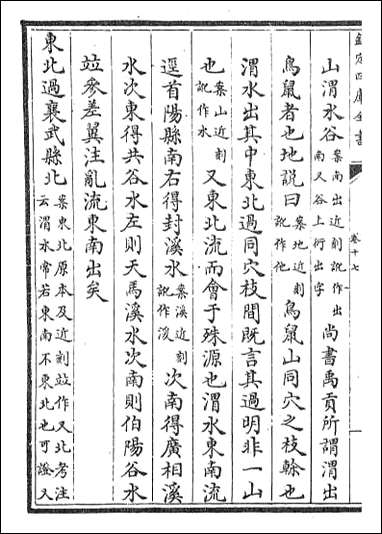 欽定四庫全書
卷十七
山渭水谷案南出近刻訛作出南又谷上衍出字尚書禹貢所謂渭出
鳥鼠者也地說曰案地近刻訛作他鳥鼠山同穴之枝榦也
渭水出其中東北過同穴枝間既言其過明非一山
也案山近刻訛作水又東北流而會于殊源也渭水東南流
逕首陽縣南右得封溪水案溪近刻訛作浚次南得廣相溪
水次東得共谷水左則天馬溪水次南則伯陽谷水
竝參差翼注亂流東南出矣
東北過襄武縣北案東北原本及近刻竝作又北考注云渭水常若東南不東北也可證又